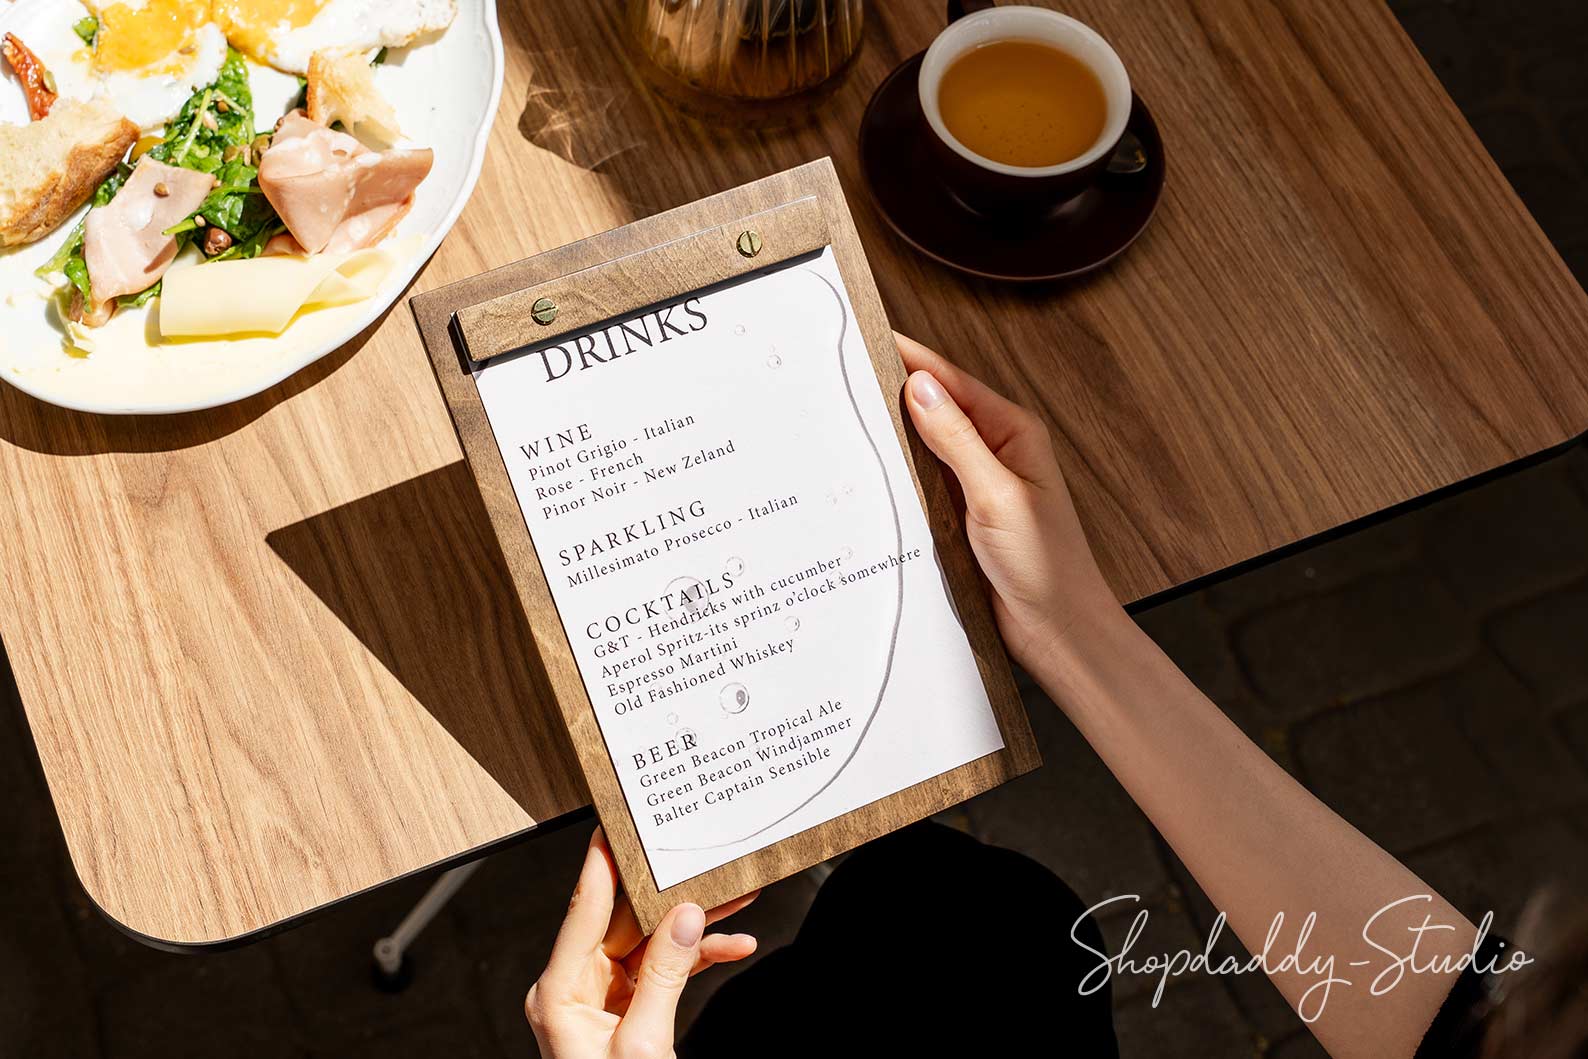 DRINKS
WINE
Pinot Grigio - Italian
Rose - French
Pinor Noir - New Zeland
SPARKLING
Millesimato Prosecco - Italian
COCKTAILS
G&T - Hendricks with cucumber
Aperol Spritz-its sprinz o'clock somewhere
Espresso Martini
Old Fashioned Whiskey
BEER
Green Beacon Tropical Ale
Green Beacon Windjammer
Balter Captain Sensible
Shopdaddy-Studio